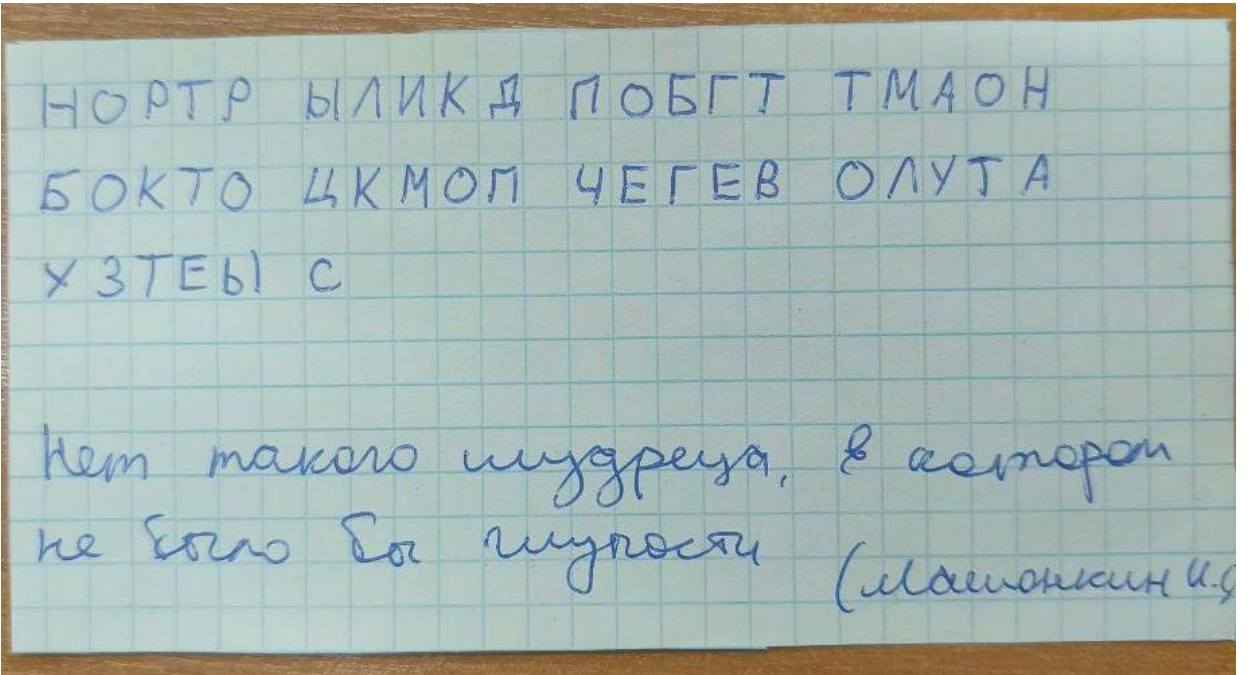 НОРТР ЫЛИКД ПОБГТ ТМАОН
БОКТО ЦКМОП ЧЕГЕВ ОЛУТА
УЗТЕЫ С
Нет такого мудреца, в котором
не было бы глупости (Машонкин И.